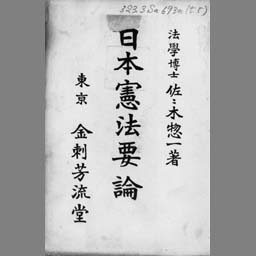 323.3Sa693n(t.t)
法學博士 佐々木惣一著
日本憲法要論
東京 金刺芳流堂